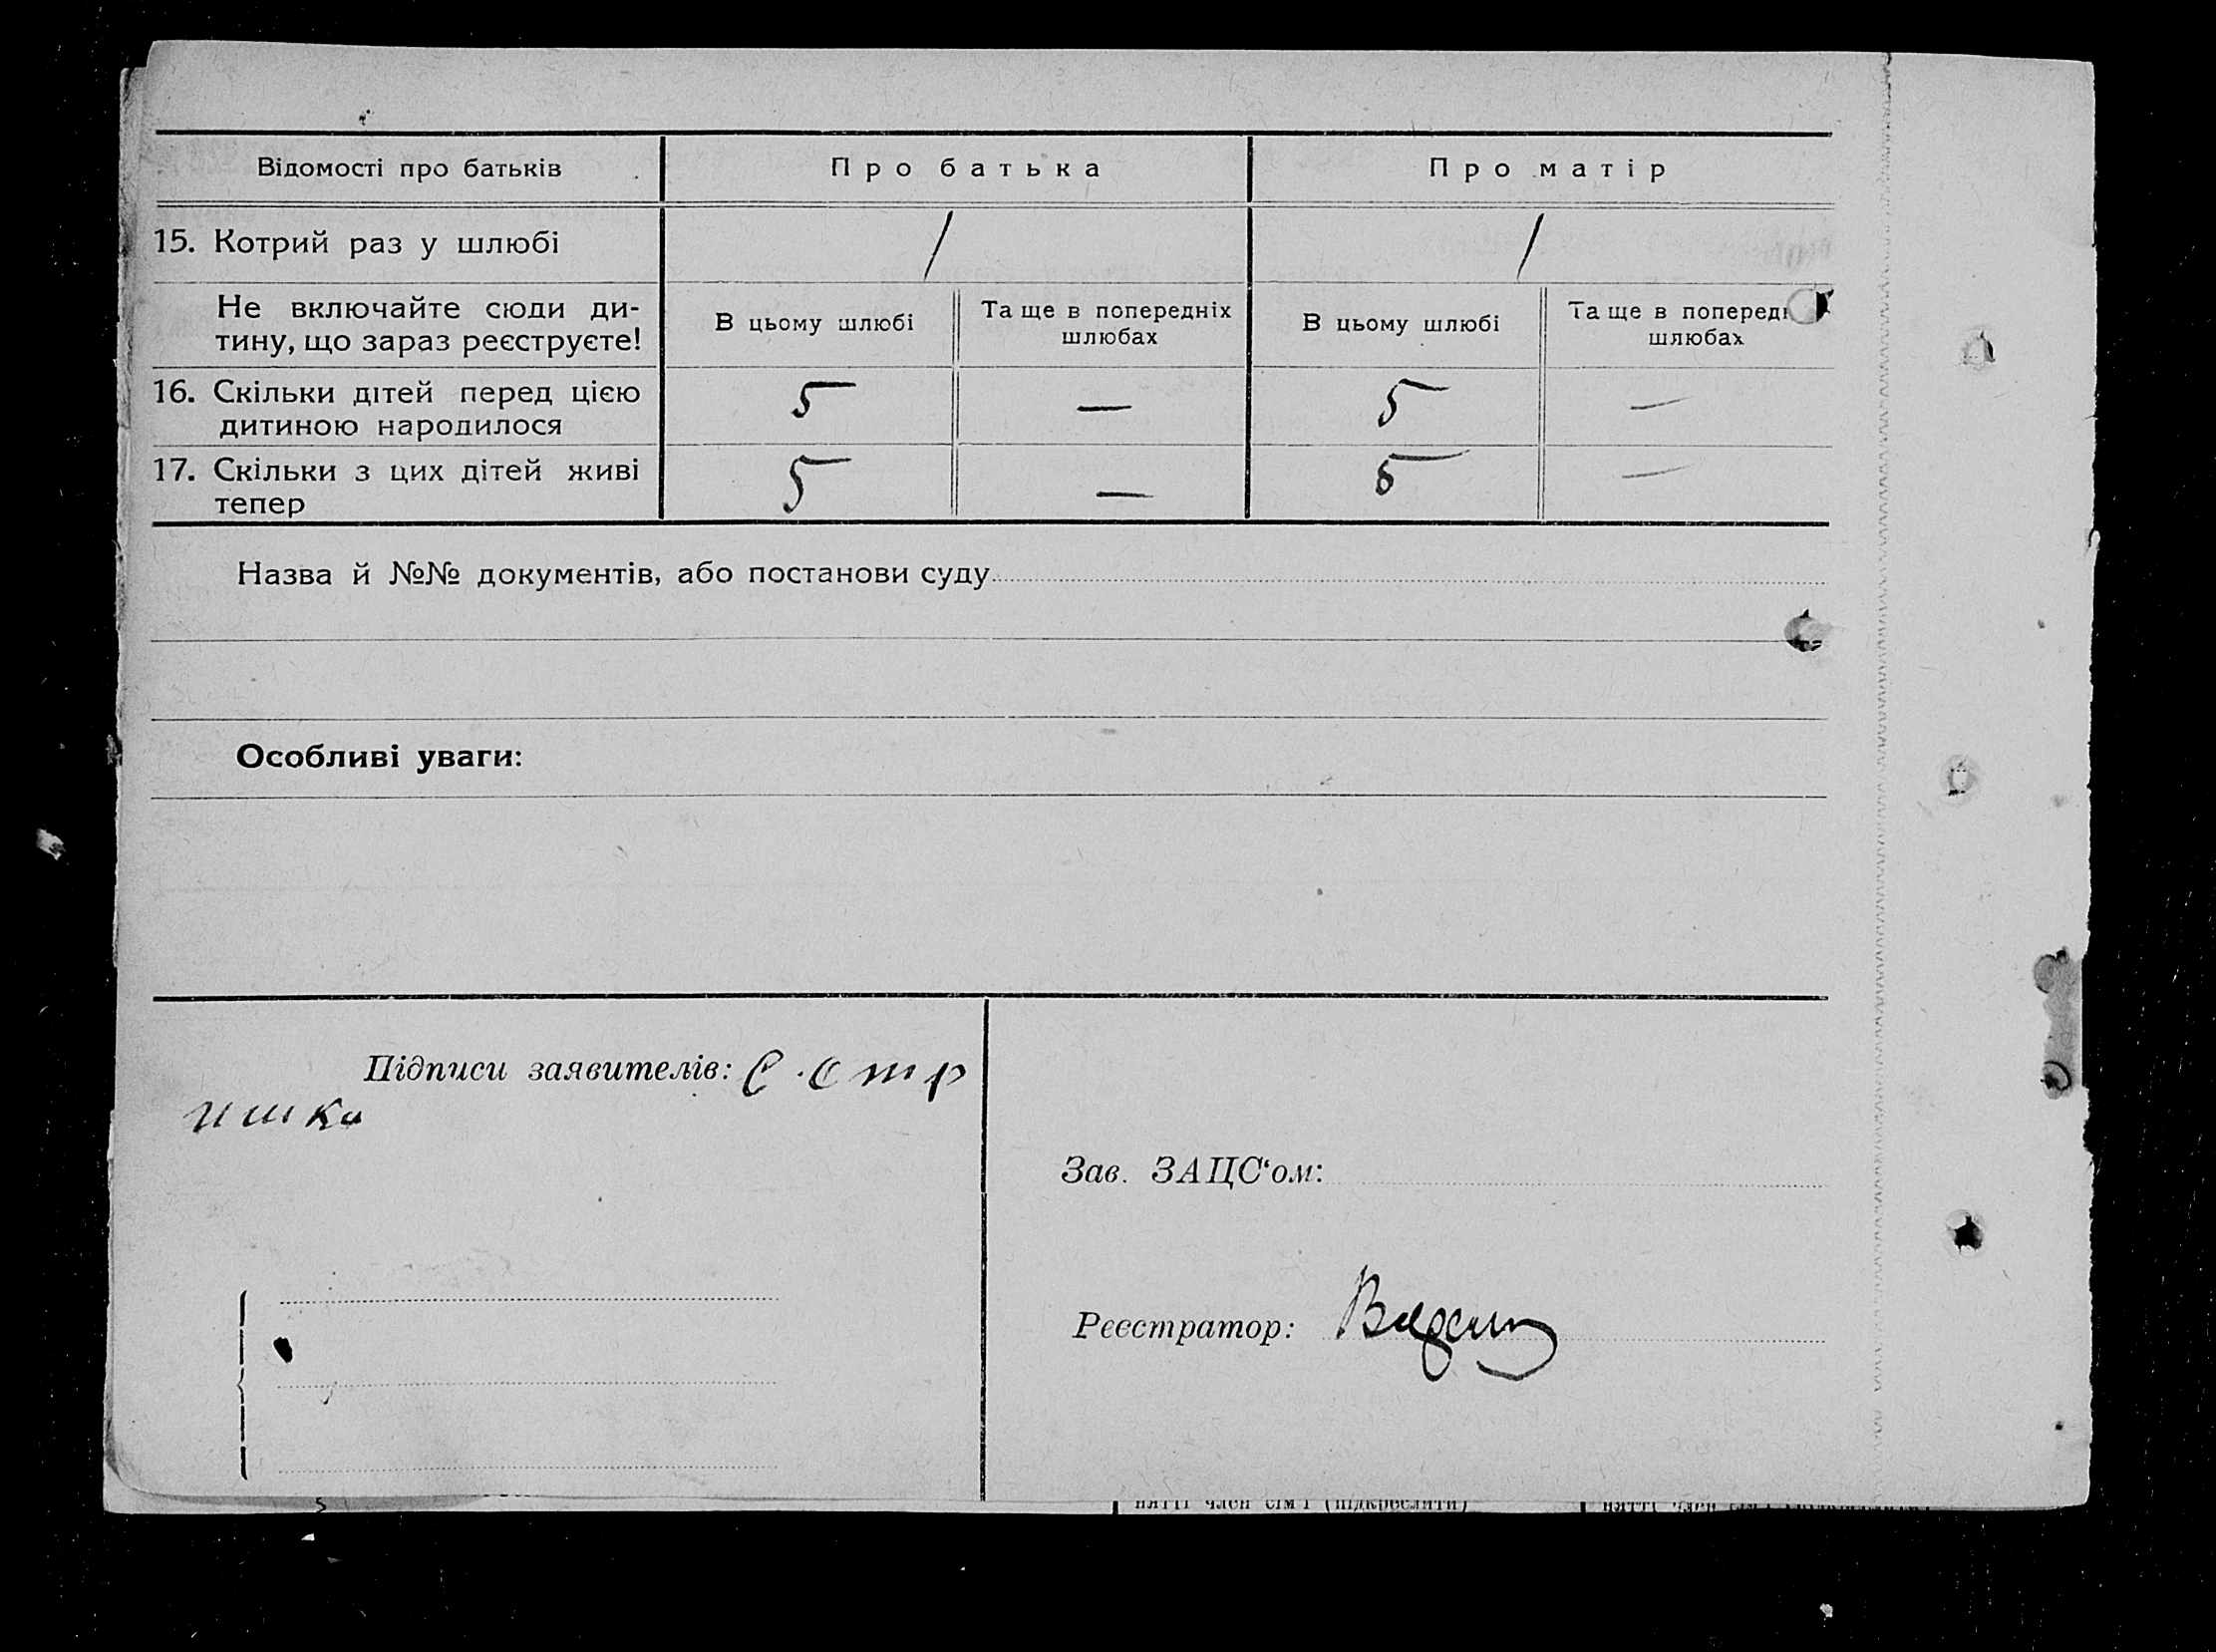 Відомості про батьків
Про батька
Про матір
15. Котрий раз у шлюбі
/
/
Не включайте сюди ди-
тину, що зараз реєструєте!
В цьому шлюбі
Та ще в попередніх
шлюбах
В цьому шлюбі
Та ще в
шлюбах
16. Скільки дітей перед цією
дитиною народилося
5
—
5
—
17. Скільки з цих дітей живі
тепер
5
—
5
—
Назва й №№ документів, або постанови суду
Особливі уваги:
Підписи заявителів: С. Стр
ишка
Зав. ЗАЦС‘ом:
Реєстратор:
член сім'ї (підкреслити)